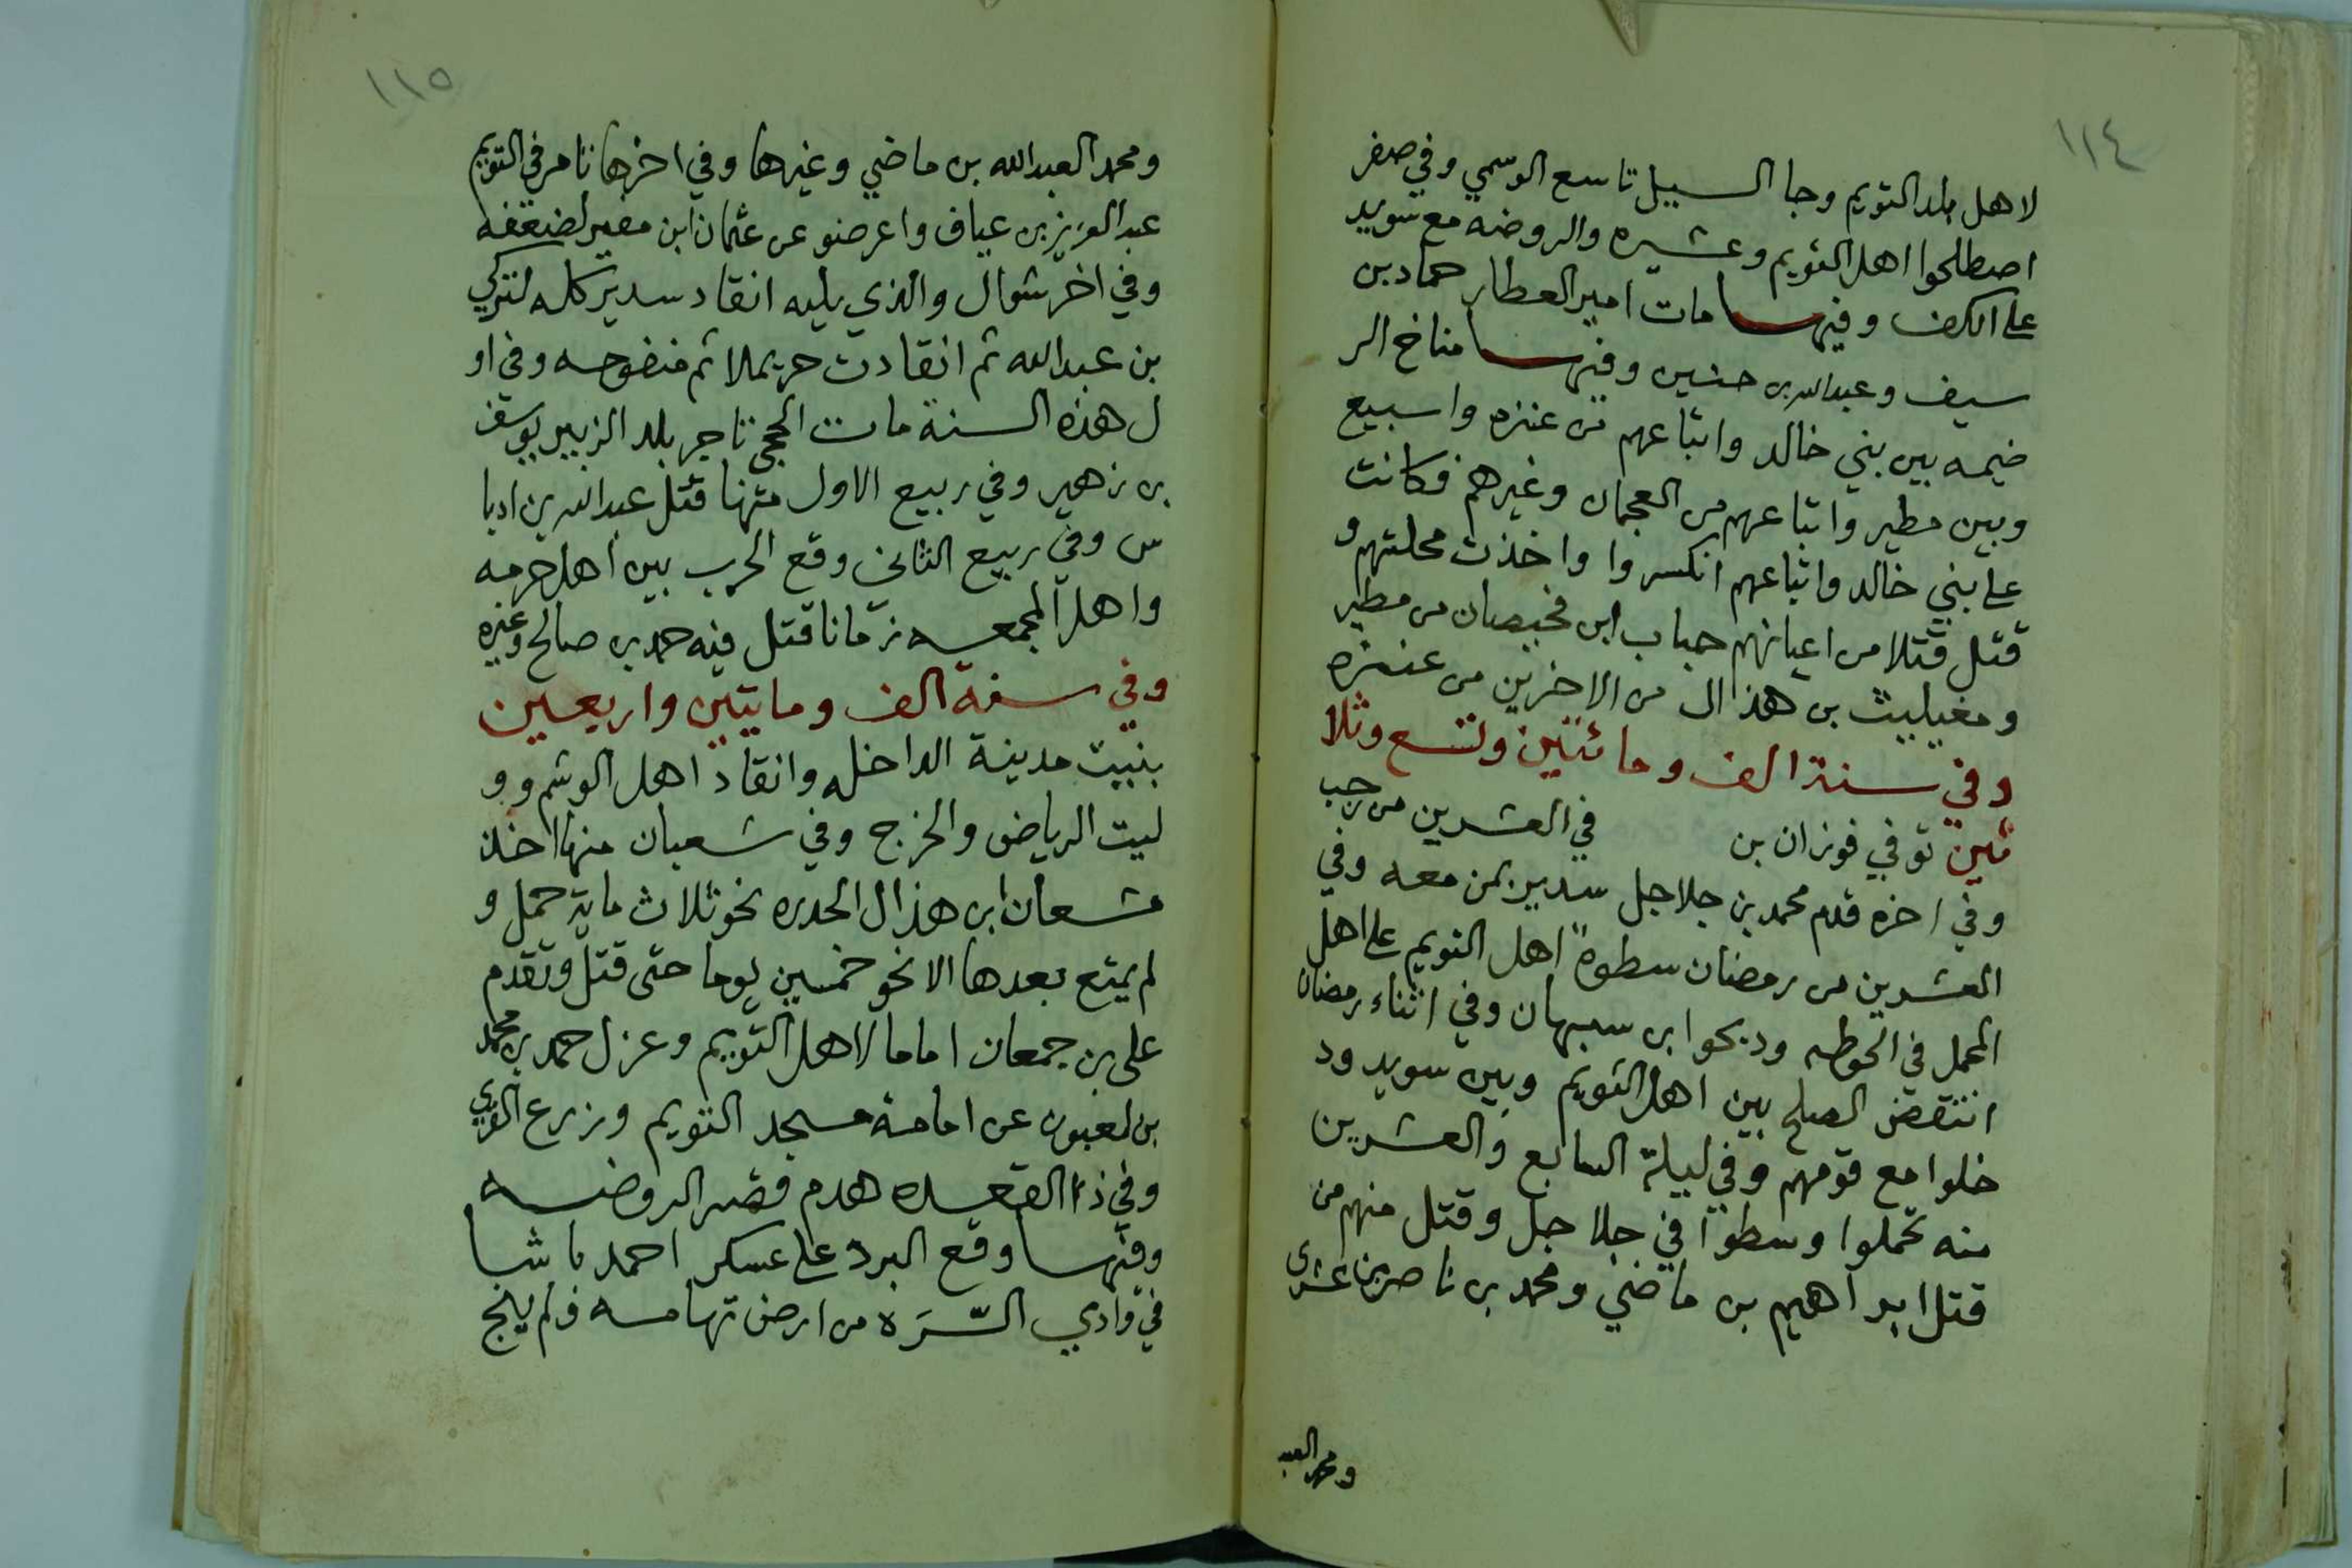 ١١٤
لاهل بلد التويم وجا السيل تاسع الوسمي وفي صفر
اصطلحوا اهل التويم وعشيره والروضه مع سويد
على الكف وفيها مات امير العطار حماد بن
سيف وعبدالله بن حنين وفيها مناخ الر
ضيمه بين بني خالد واتباعهم من عنزه واسبيع
وبين مطير واتباعهم من العجمان وغيرهم فكانت
على بني خالد واتباعهم انكسروا واخذت محلتهم و
قتل قتلا من اعيانهم حباب ابن قحيصان من مطير
ومغيليث بن هذال من الاخرين من عنزه
وفي سنة الف ومائتين وتسع وثلا
ثين توفي فوزان بن في العشرين من رجب
وفي اخره قدم محمد بن جلاجل سدير بمن معه وفي
العشرين من رمضان سطوة اهل التويم على اهل
المحمل في الحوطه وذبحوا بن سبهان وفي اثناء رمضان
انتقض الصلح بين اهل التويم وبين سويد ود
خلوا مع قومهم وفي ليلة السابع والعشرين
منه تحملوا وسطوا في جلاجل وقتل منهم من
قتل ابراهيم بن ماضي ومحمد بن ناصر بن عشرى
ومحمد العبد
١١٥
ومحمد العبدالله بن ماضي وغيرها وفي اخرها تامر في التويم
عبدالعزيز بن عياف واعرضو عن عثمان ابن مفيز لضعفه
وفي اخر شوال والذي يليه انقاد سدير كله لتركي
بن عبدالله ثم انقادت حريملا ثم منفوحه وفي او
ل هذه السنة مات الحجي تاجر بلد الزبير يوسف
بن زهير وفي ربيع الاول منها قتل عبدالله بن ادبا
س وفي ربيع الثاني وقع الحرب بين اهل حرمه
واهل المجمعه زمانا قتل فيه حمد بن صالح وغيره
وفي سنة الف ومايتين واربعين
بنيت مدينة الداخله وانقاد اهل الوشم وو
ليت الرياض والخرج وفي شعبان منها اخذ
مشعان ابن هذال الحدره نحو ثلاث ماية حمل و
لم يمتع بعدها الا نحو خمسين يوما حتى قتل وتقدم
على بن جمعان اماما لاهل التويم وعزل حمد بن محمد
بن لعبون عن امامة مسجد التويم وزرع القري
وفي ذا القعده هدم قصر الروضه
وفيها وقع البرد على عسكر احمد باشا
في وادي السَّرَه من ارض تهامه ولم ينج